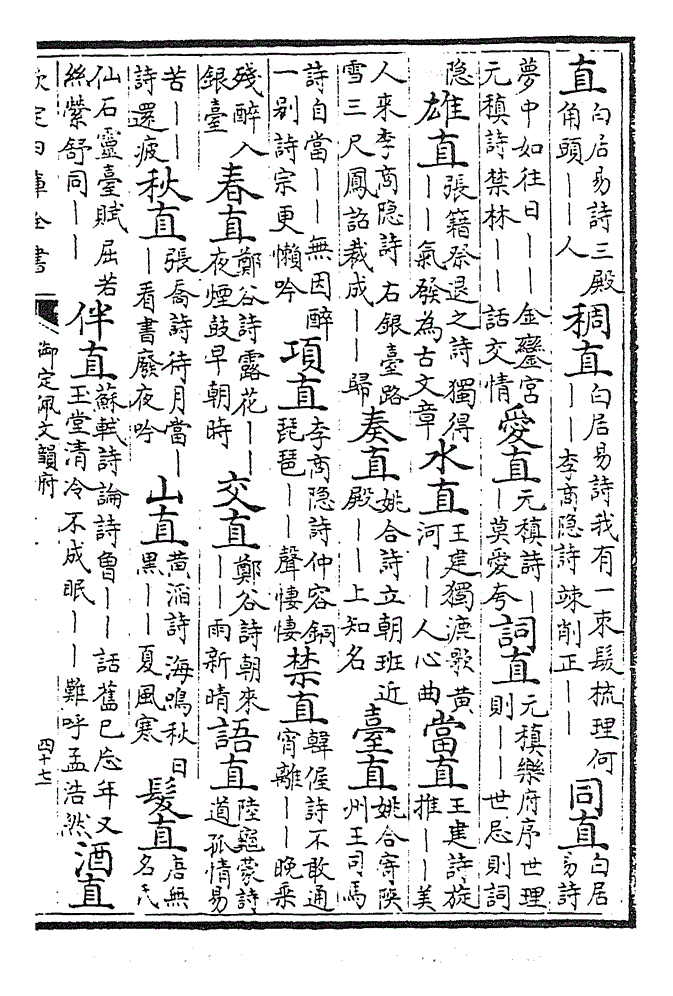 直白居易詩三殿角頭——人稠直白居易詩我有一束髮梳理何——李商隐詩竦削正——同直白居易詩
夢中如往日——金鑾宮元稹詩禁林——話交情愛直元稹詩——莫愛夸詞直元稹樂府序世理則——世忌則詞
隐雄直張籍祭退之詩獨得——氣發為古文章水直王建獨漉歌黄河——人心曲當直王建詩旋推——美
人來李商隐詩右銀臺路雪三尺鳳詔裁成——歸奏直姚合詩立朝班近殿——上知名臺直姚合寄陜州王司馬
詩自當——無因醉一别詩宗更懶吟項直李商隐詩仲容銅琵琶——聲悽悽禁直韓偓詩不敢通宵離——晚乘
殘醉入銀臺春直鄭谷詩露花——夜煙鼓早朝時交直鄭谷詩朝來——雨新晴語直陸龜蒙詩道孤情易
苦——詩還疲秋直張喬詩待月當——看書廢夜吟山直黄滔詩海鳴秋日黑——夏風寒髮直唐無名氏
仙石靈臺賦屈若絲縈舒同——伴直蘇軾詩論詩魯——話舊已忘年又玉堂清冷不成眠——難呼孟浩然酒直
欽定四庫全書 御定佩文韻府 四十七